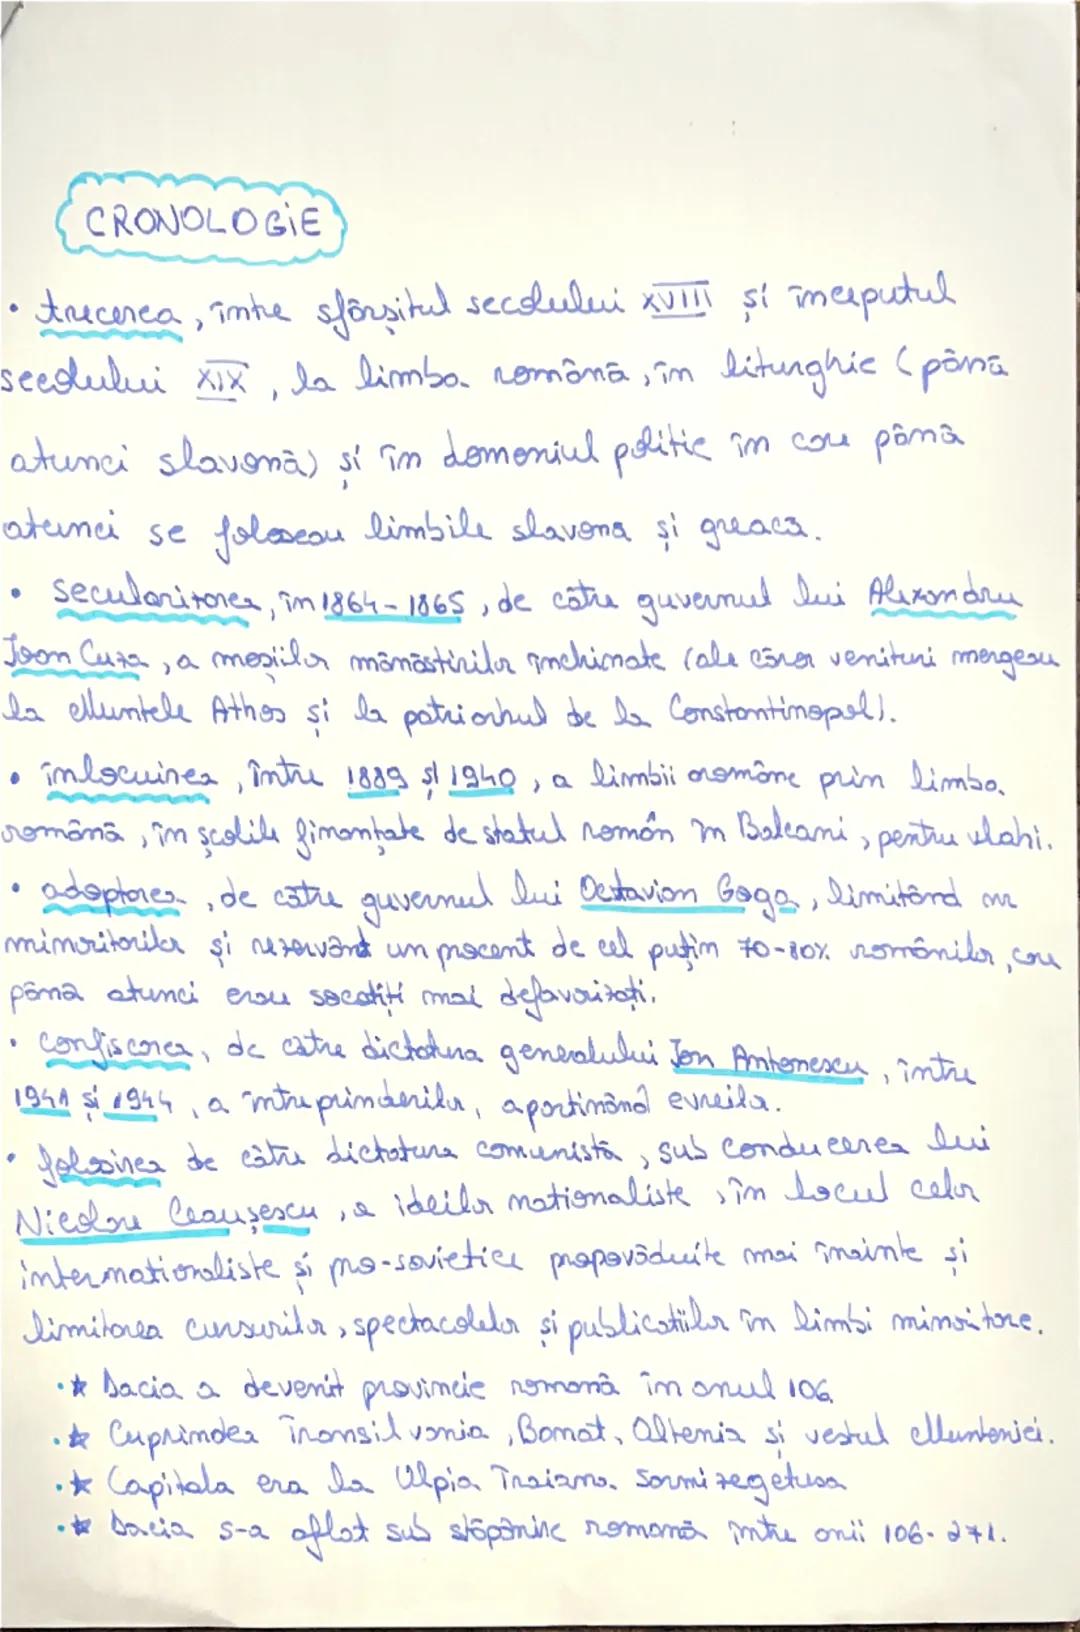 CRONOLOGIE
• trecerea, între sfârșitul secolului XVIII și începutul
secolului XIX, la limba română, în liturghie (până
atunci slavonă) și în domeniul politic în care până
atunci se foloseau limbile slavona și greacă.
• secularizarea, în 1864-1865, de către guvernul lui Alexandru
Ioan Cuza, a moșiilor mănăstirilor închinate (ale căror venituri mergeau
la Muntele Athos și la patriarhul de la Constantinopol).
• înlocuirea, între 1889 și 1940, a limbii aromâne prin limba
română, în școlile finanțate de statul român în Balcani, pentru vlahi.
• adoptarea, de către guvernul lui Octavian Goga, limitând nr
minoritarilor și rezervând un procent de cel puțin 70-80% românilor, care
până atunci erau socotiți mai defavorizați.
• confiscarea, de către dictatura generalului Ion Antonescu, între
1941 și 1944, a întreprinderilor, aparținând evreilor.
• folosirea de către dictatura comunistă, sub conducerea lui
Nicolae Ceaușescu, a ideilor naționaliste, în locul celor
internaționaliste și pro-sovietice propovăduite mai înainte și
limitarea cursurilor, spectacolelor și publicațiilor în limbi minoritare.
•★ Dacia a devenit provincie romană în anul 106.
•★ Cuprindea Transilvania, Banat, Oltenia și vestul Munteniei.
•★ Capitala era la Ulpia Traiana Sarmizegetusa
•★ Dacia s-a aflat sub stăpânire romană între anii 106-271.